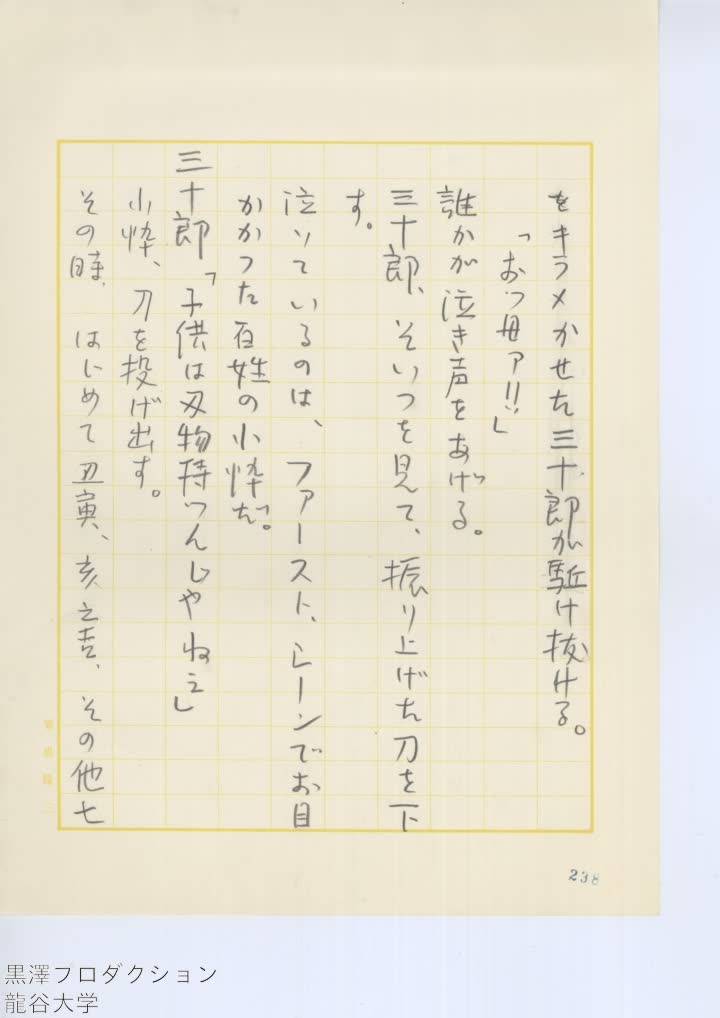 をキラメかせた三十郎が駈け抜ける。
「おつ母ァ!!」
誰かが泣き声をあげる。
三十郎、そいつを見て、振り上げた刀を下
す。
泣いているのは、ファースト、シーンでお目
かかつた百姓の小悴だ。
三十郎「子供は刃物持つんじやねえ」
小悴、刀を投げ出す。
その時、はじめて丑寅、亥之吉、その他七
238
黒澤プロダクション
龍谷大学